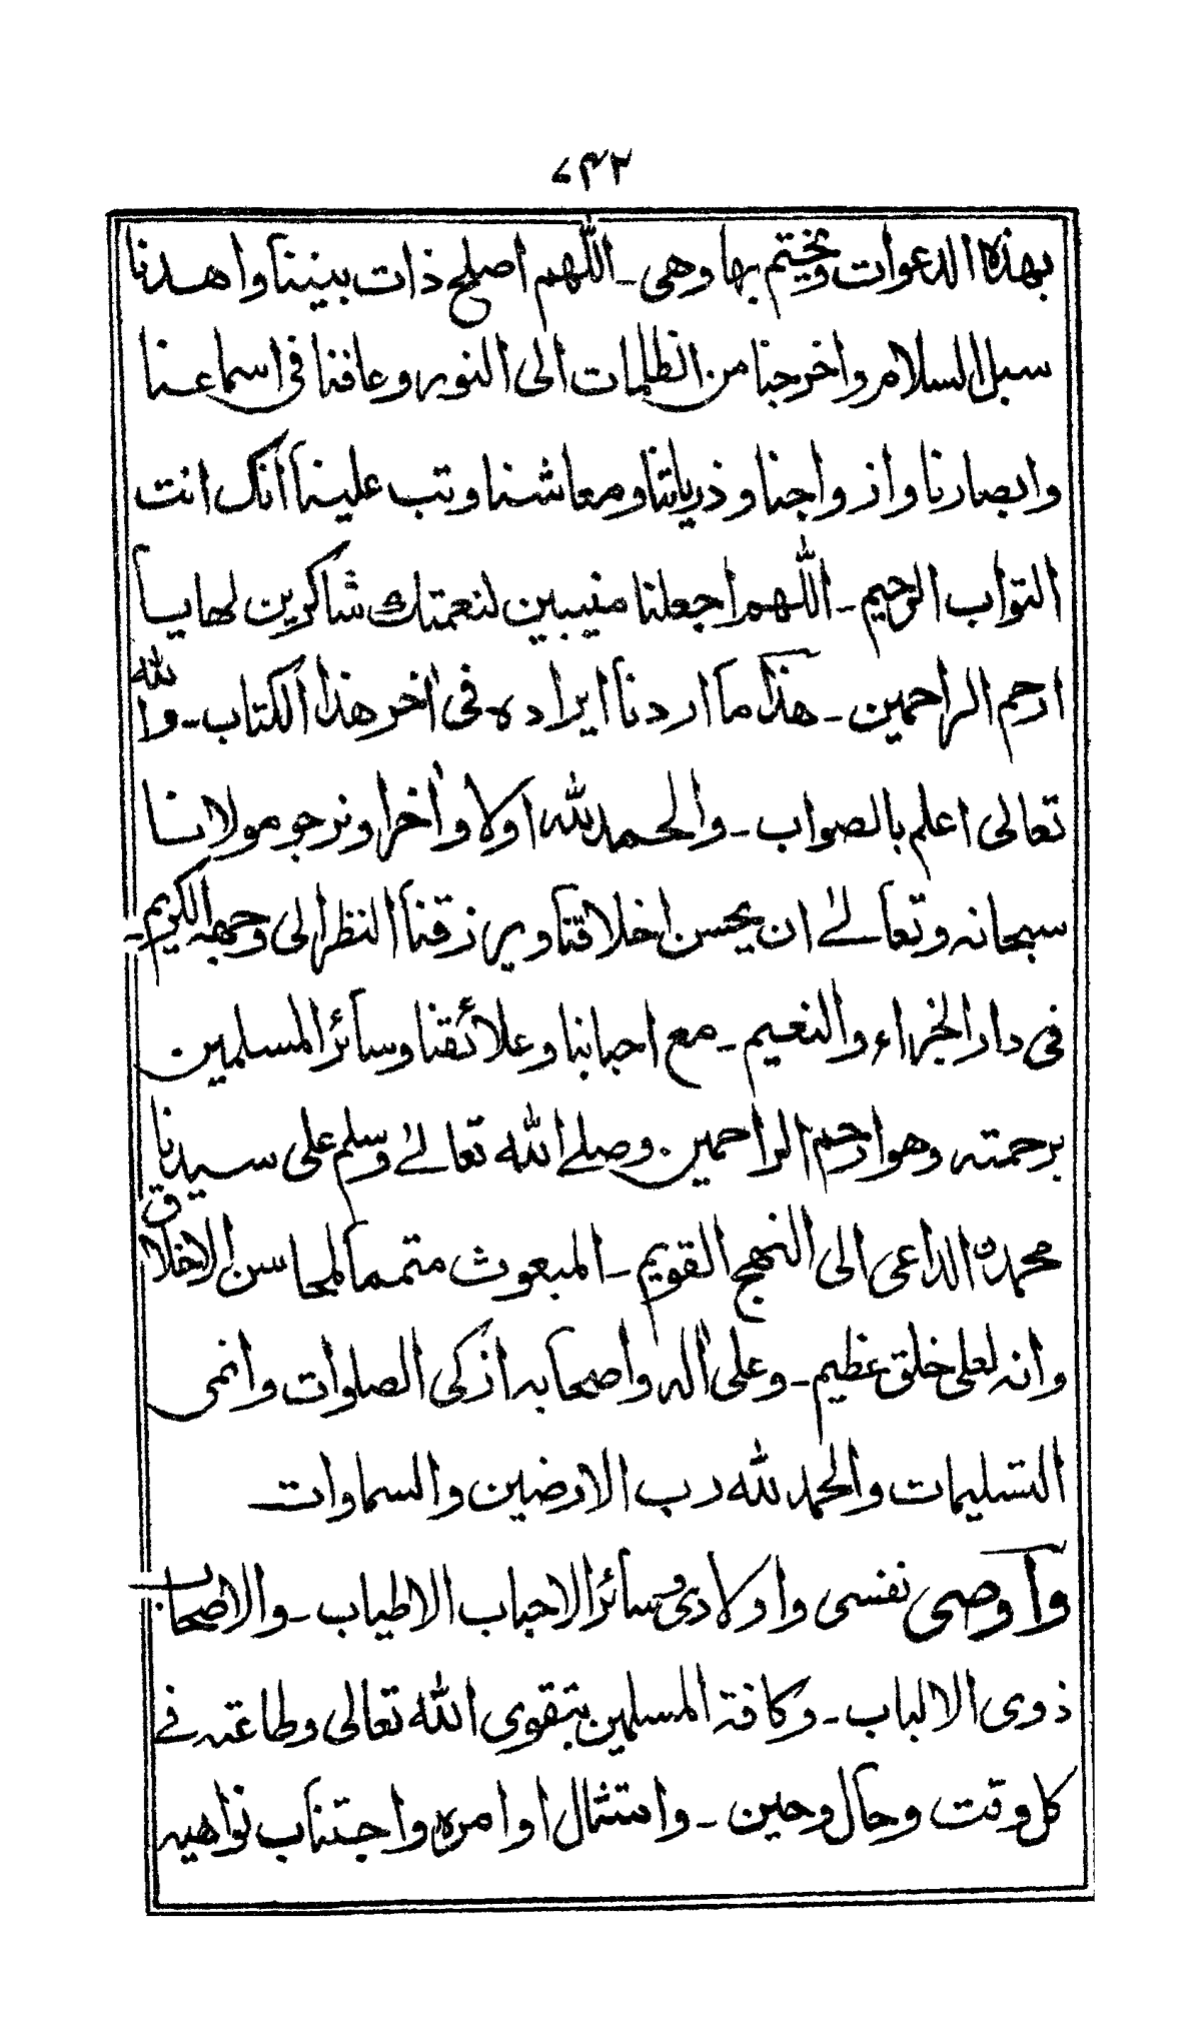 ۷۴۲
بهذه الدعوات ونختم بها وهى ـ اللّٰهم اصلح ذات بيننا واهدنا
سبل السلام واخرجنا من الظلمات الى النور وعافنا فى اسماعنا
وابصارنا وازواجنا وذرياتنا ومعاشنا وتب علينا انك انت
التواب الرحيم ـ اللّٰهم اجعلنا منيبين لنعمتك شاكرين لها يا
ارحم الراحمين ـ هذا ما اردنا ايراده فى اٰخر هذا الكتاب ـ واللّٰه
تعالى اعلم بالصواب ـ والحمد للّٰه اولا واٰخرا ونرجو مولانا
سبحانه وتعالىٰ ان يحسن اخلاقنا ويرزقنا النظر الى وجهه الكريم ـ
فى دار الجزاء والنعيم ـ مع احبابنا وعلائقنا وسائر المسلمين
برحمته وهو ارحم الراحمين . وصلى اللّٰه تعالىٰ وسلم على سيدنا
محمد ن الداعى الى النهج القويم ـ المبعوث متمما لمحاسن الاخلاق
وانه لعلى خلق عظيم ـ وعلى اٰله واصحابه ازكى الصلوات وانمى
التسليمات والحمد للّٰه رب الارضين والسماوات
واوصى نفسى واولادى وسائر الاحباب الاطياب ـ والاصحاب
ذوى الالباب ـ وكافة المسلمين بتقوى اللّٰه تعالى وطاعته فى
كل وقت وحال وحين ـ وامتثال اوامره واجتناب نواهيه